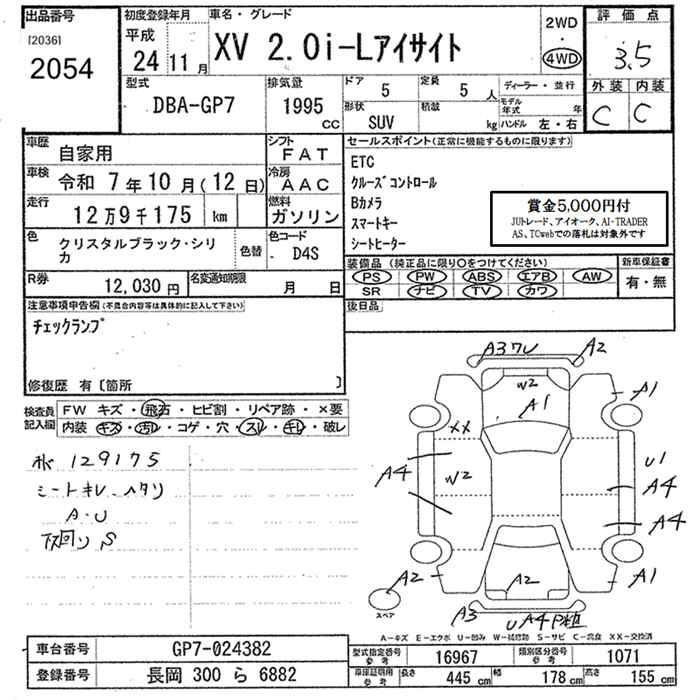 出品番号
[2036]
2054
初度登録年月
平成
24 11 月
車名・グレード
XV 2.0i-Lアイサイト
2WD
・
4WD
評価点
3.5
外装 内装
C C
型式
DBA-GP7
排気量
1995
CC
ドア
5
定員
5 人
形状
SUV
積載
kg
ディーラー・並行
モデル年式 年
ハンドル 左・右
車歴
自家用
シフト
FAT
車検
令和 7年10月(12日)
冷房
AAC
走行
12万9千175 km
燃料
ガソリン
色
クリスタルブラック・シリカ
色替
色コード
D4S
R券
12,030 円
名変通知期限
月 日
セールスポイント(正常に機能するものに限ります)
ETC
クルーズコントロール
Bカメラ
スマートキー
シートヒーター
賞金5,000円付
JUトレード、アイオーク、AI-TRADER
AS、TCwebでの落札は対象外です
装備品(純正品に限り○をつけてください)
PS PW ABS エアB AW
SR ナビ TV カワ
新車保証書
有・無
後日品
注意事項申告欄(不具合内容等は具体的に記入して下さい)
チェックランプ
修復歴 有〔箇所 〕
検査員記入欄
FW キズ・飛石・ヒビ割・リペア跡・×要
内装 キズ・汚レ・コゲ・穴・スレ・キレ・破レ
129175
シートキレ.ヘタリ
A・U
下回リ S
A3ワレ A2
W2
A1
A1
XX
A4
W2
U1
A4
A4
A2
A2
A1
A3
UA4
スペア
A-キズ E-エクボ U-凹み W-補修跡 S-サビ C-腐食 XX-交換済
車台番号
GP7-024382
登録番号
長岡 300 ら 6882
型式指定番号
参考
16967
類別区分番号
参考
1071
車庫証明用
参考
長さ
445 cm
幅
178 cm
高さ
155 cm